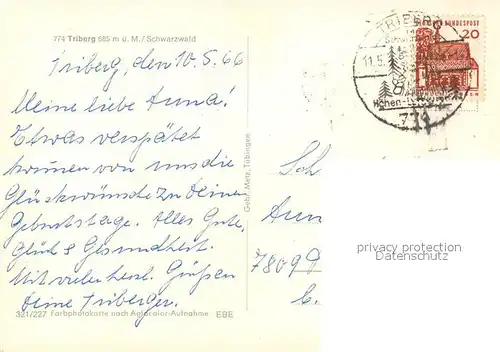 774 Triberg 685 m ü. M./Schwarzwald
Triberg, den 10.5.66
Meine liebe Anna!
Etwas verspätet
kommen von uns die
Glückwünsche zu Deinem
Geburtstage. Alles Gute,
Glück & Gesundheit.
Mit vielen herzl. Grüßen
Deine Triberger.
321/227 Farbphotokarte nach Agfacolor-Aufnahme EBE
Gebr. Metz, Tübingen
TRIBERG
11.5.
Höhen-
774
BUNDESPOST
20
Sch
Ann
7809 D
privacy protection
www.ansichtskarten-center.de